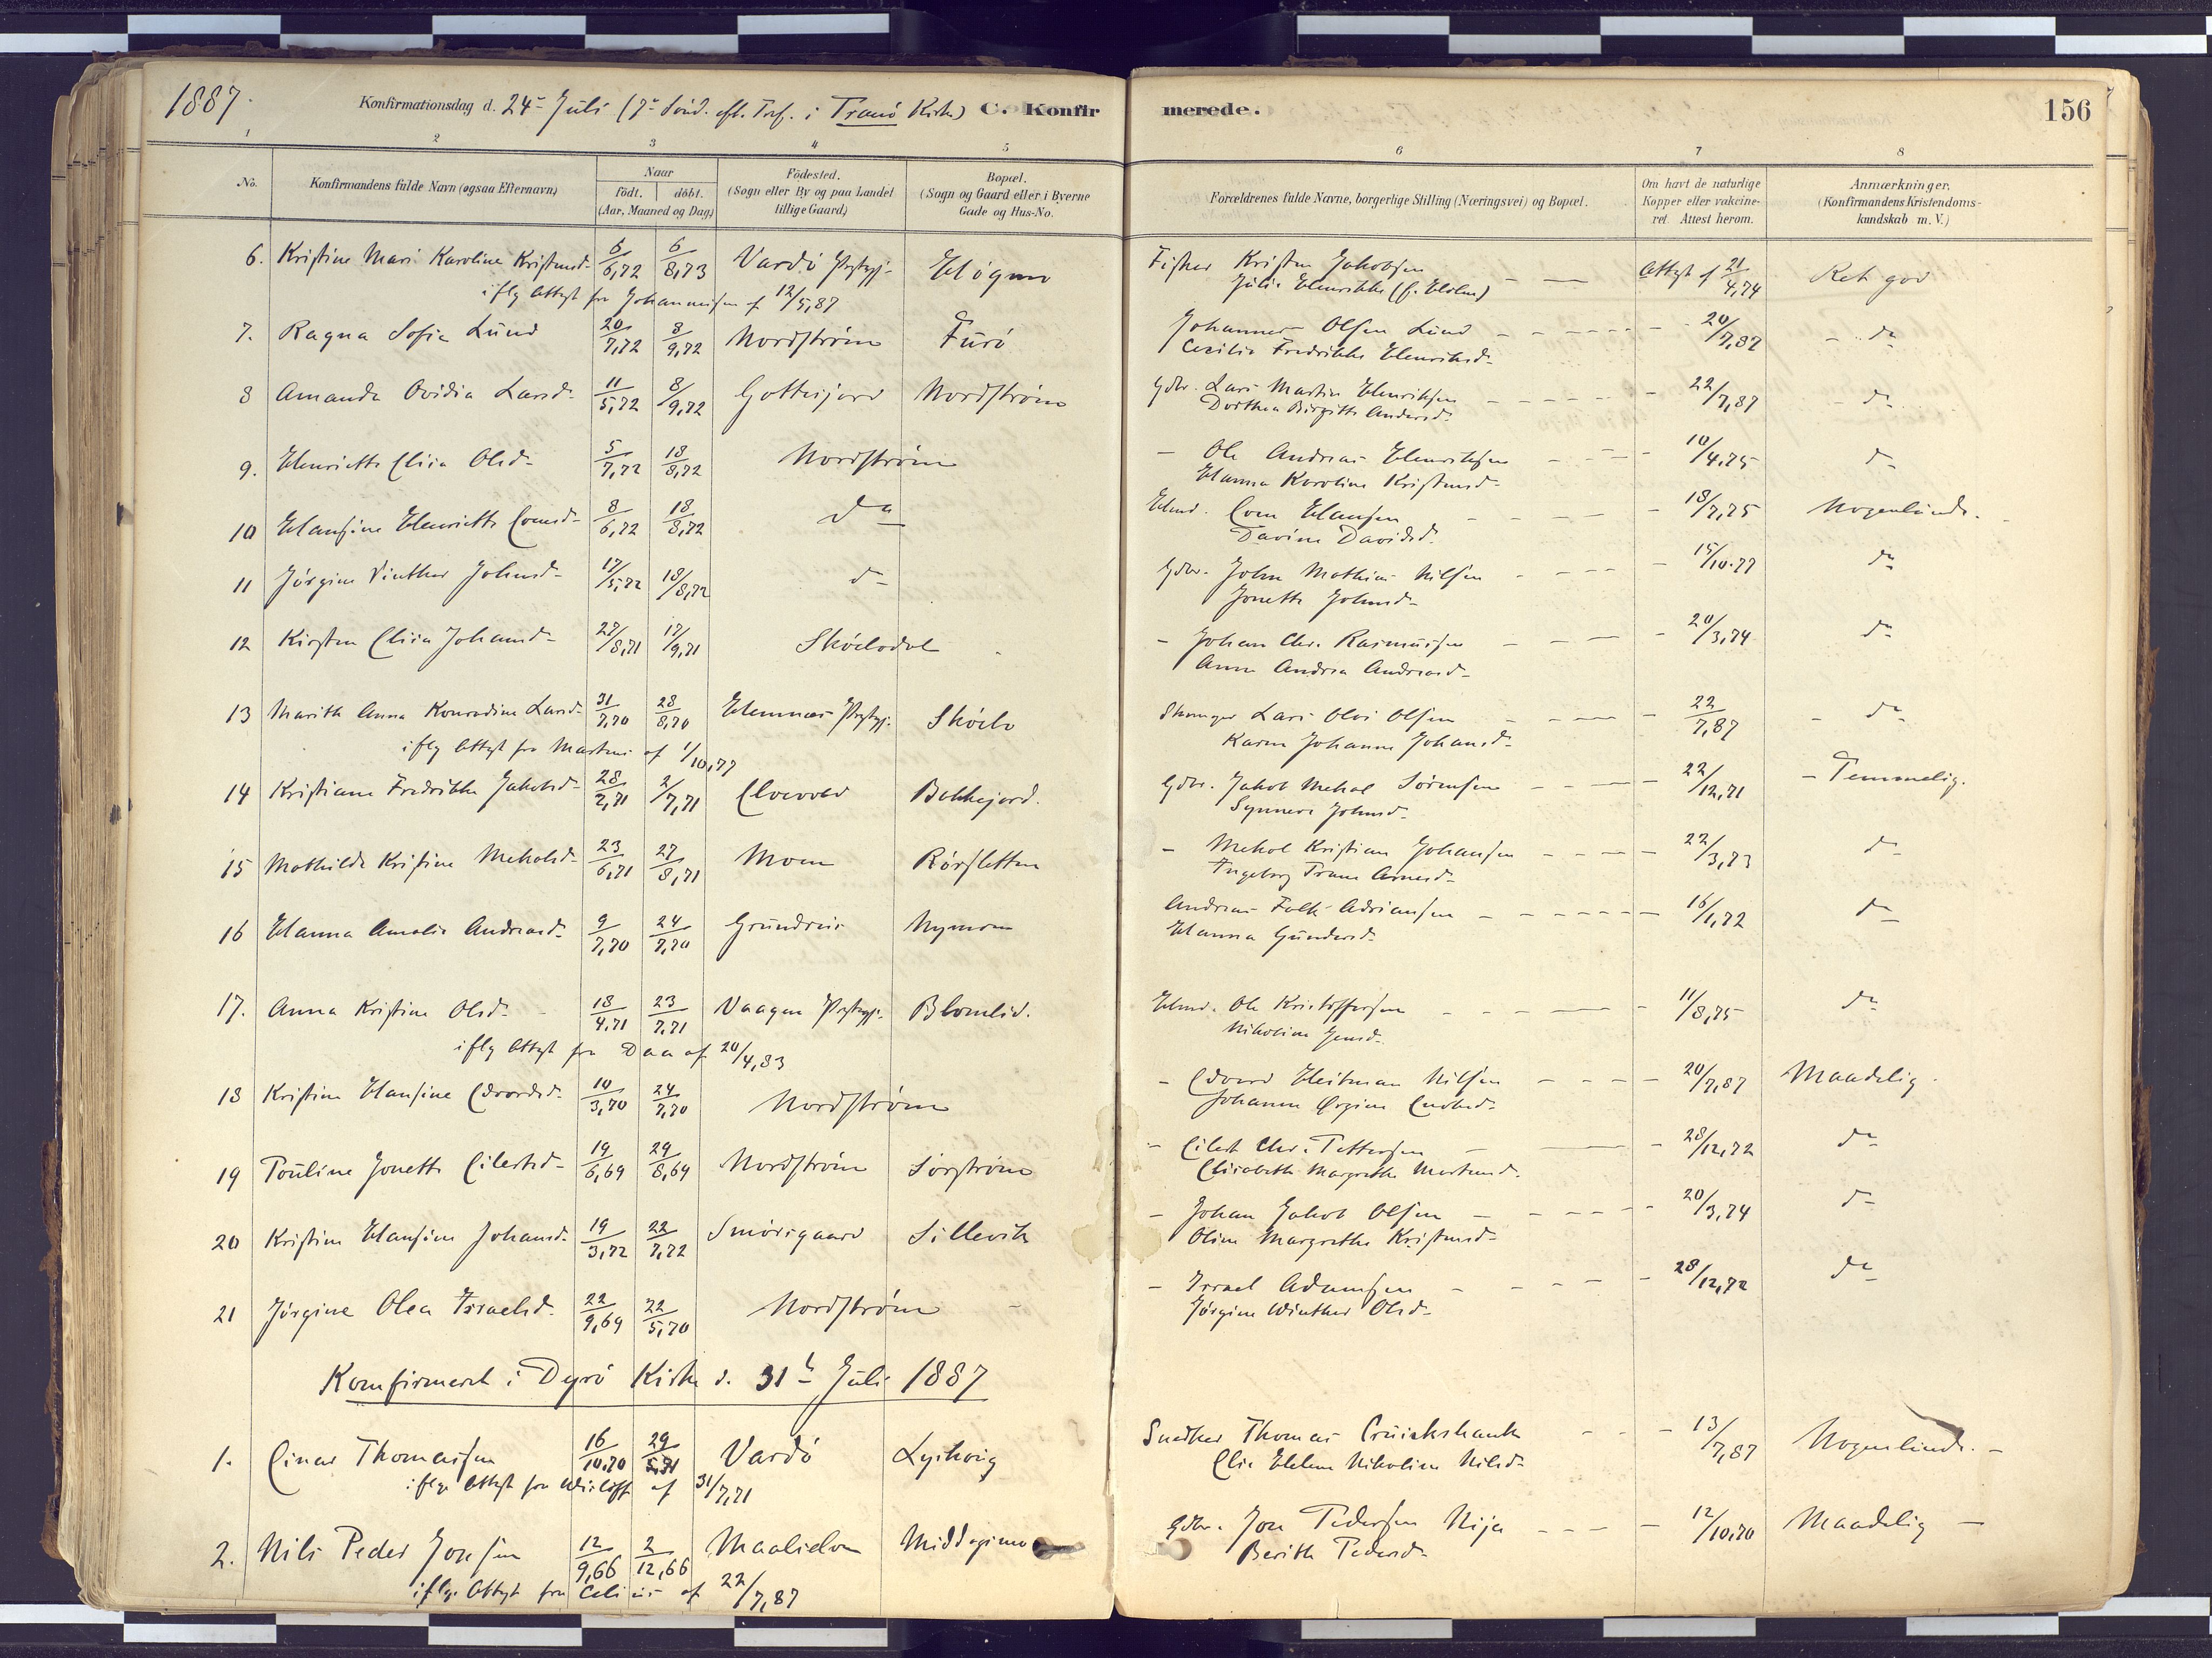 1887.
Konfirmationsdag d. 24de Juli (7de Sönd. eft. Tref. i Tranö Kirke) C. Konfirmerede.
156
1 2 3 4 5 6 7 8
No. Konfirmandens fulde Navn (ogsaa Efternavn) Naar födt. döbt. (Aar, Maaned og Dag) Födested. (Sogn eller By og paa Landet tillige Gaard) Bopæl. (Sogn og Gaard eller i Byerne Gade og Hus-No. Forældrenes fulde Navne, borgerlige Stilling (Næringsvei) og Bopæl. Om havt de naturlige Kopper eller vakcineret. Attest herom. Anmærkninger. (Konfirmandens Kristendomskundskab m. V.)
6. Kristine Mari Karoline Kristensd. 6/6,72 6/8,73 Vardö Prstgj. Högmo Fisker Kristen Jakobsen Attest af 21/4,74 Ret god
iflg Attest fra Johannesen af 12/5,87 Julie Henrikke (f. Holm)
7. Ragna Sofie Lund 20/7,72 8/9,72 Nordström Furö Johannes Olsen Lund 20/7,87 do
Cecilia Fredrikke Henriksd.
8 Amanda Ovidia Larsd. 11/5,72 8/9,72 Gottesjord Nordström Gdbr. Lars Martin Henriksen 22/7,87 do
Dorthea Birgitte Andersd.
9. Henriette Elisa Olsd. 5/7,72 18/8,72 Nordström - Ole Andreas Henriksen 10/4,75 do
Hanna Karoline Kristensd.
10 Hansine Henriette Comsd. 8/6,72 18/8,72 do Hmd. Com Hansen 18/7,75 Nogenlunde.
Davine Davidsd.
11 Jörgine Vinther Johnsd. 17/5,72 18/8,72 do Gdbr. John Mathias Nilsen 15/10.77 do
Jonette Johnsd.
12 Kirsten Elisa Johansd. 27/8,71 17/9,71 Sköelvdal - Johan Chr. Rasmussen 20/3,74 do
Anne Andrea Andreasd.
13 Marith Anna Konradine Larsd. 31/7,70 28/8,70 Hemnæs Prstgj. Sköelv Lars Olai Olsen 22/7,87 do
iflg Attest fra Martens af 1/10,77 Karen Johanne Johansd.
14 Kristiane Fredrikke Jakobsd. 28/2,71 2/7,71 Elvevold Bekkejord. Gdbr. Jakob Mekal Sörensen 22/12,71 - Temmelig.
Synnere Johnsd.
15 Mathilde Kristine Mekalsd. 23/6,71 27/8,71 Moen Rörsletten - Mekal Kristian Johansen 22/3,73 do
Ingeborg Trane Arnesd.
16 Hanna Amalie Andreasd. 9/7,70 24/7,70 Grundreis Nymoen Andreas Falk Adriansen 16/1,72 do
Hanna Gundersd.
17. Anna Kristine Olsd. 18/4,71 23/7,71 Vaagen Prstgj. Blomlid. Hmd. Ole Kristoffersen 11/8,75 do
iflg Attest fra Daa af 20/4,83 Nikoline Jensd.
18 Kristine Hansine Edvardsd. 10/3,70 24/7,70 Nordström - Edvard Heitman Nilsen 20/7,87 Maadelig.
Johanne
19 Pouline Jonette Eilertsd. 19/6,69 29/8,69 Nordström Sörström - Eilert Chr. Pettersen 28/12,72 do
Elisabeth Margrethe Mortensd.
20 Kristine Hansine Johansd. 19/3,72 22/7,72 Smörsgaard Sillevik - Johan Jakob Olsen 20/3,74 do
Oline Margrethe Kristensd.
21 Jörgine Olea Israelsd. 22/9,69 22/5,70 Nordström - Israel Adamsen 28/12,72 do
Jörgine Winther Olsd.
Konfirmeret i Dyrö Kirke d. 31te Juli 1887
1. Einar Thomassen 16/10,70 29/5,71 Vardö Lysbing Snedker Thomas Cruickshank 13/7,87 Nogenlunde.
iflge Attest fra af 31/7,71 Elie Helene Nikoline Nilsd.
2. Nils Peder Jonsen 12/9,66 2/12,66 Maalselven Middagsnes Gdbr. Jon Pedersen Nija 12/10,70 Maadelig
iflge Attest fra af 22/7,87 Berith Pedersd.